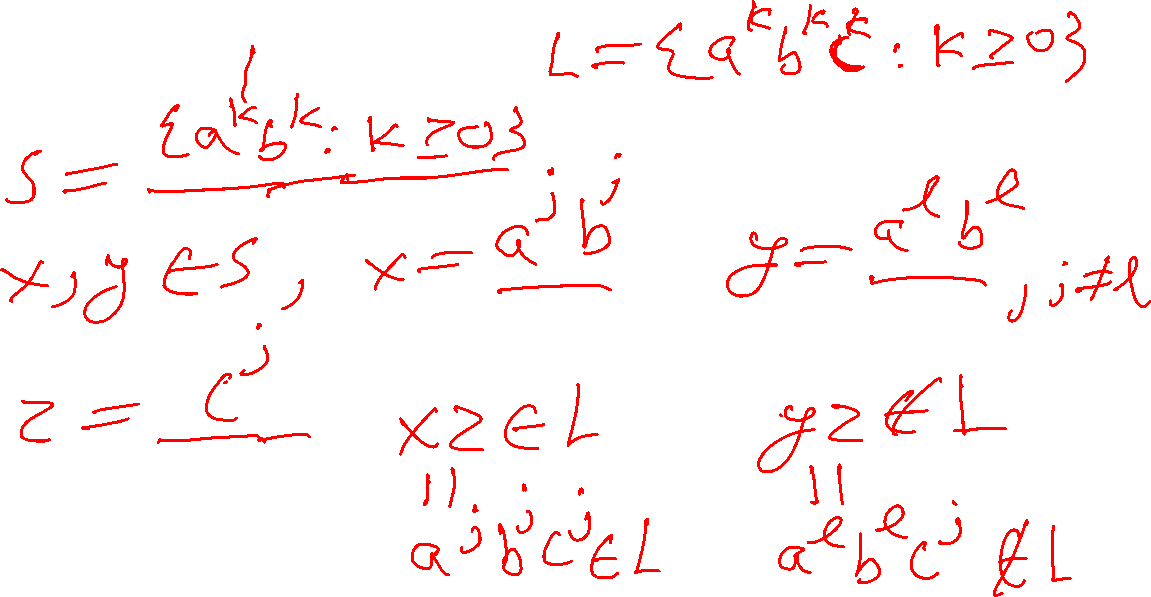 L = {a^k b^k c^k : k ≥ 0}
S = {a^k b^k : k ≥ 0}
x, y ∈ S, x = a^j b^j y = a^l b^l, j ≠ l
z = c^j xz ∈ L yz ∉ L
|| ||
a^j b^j c^j ∈ L a^l b^l c^j ∉ L